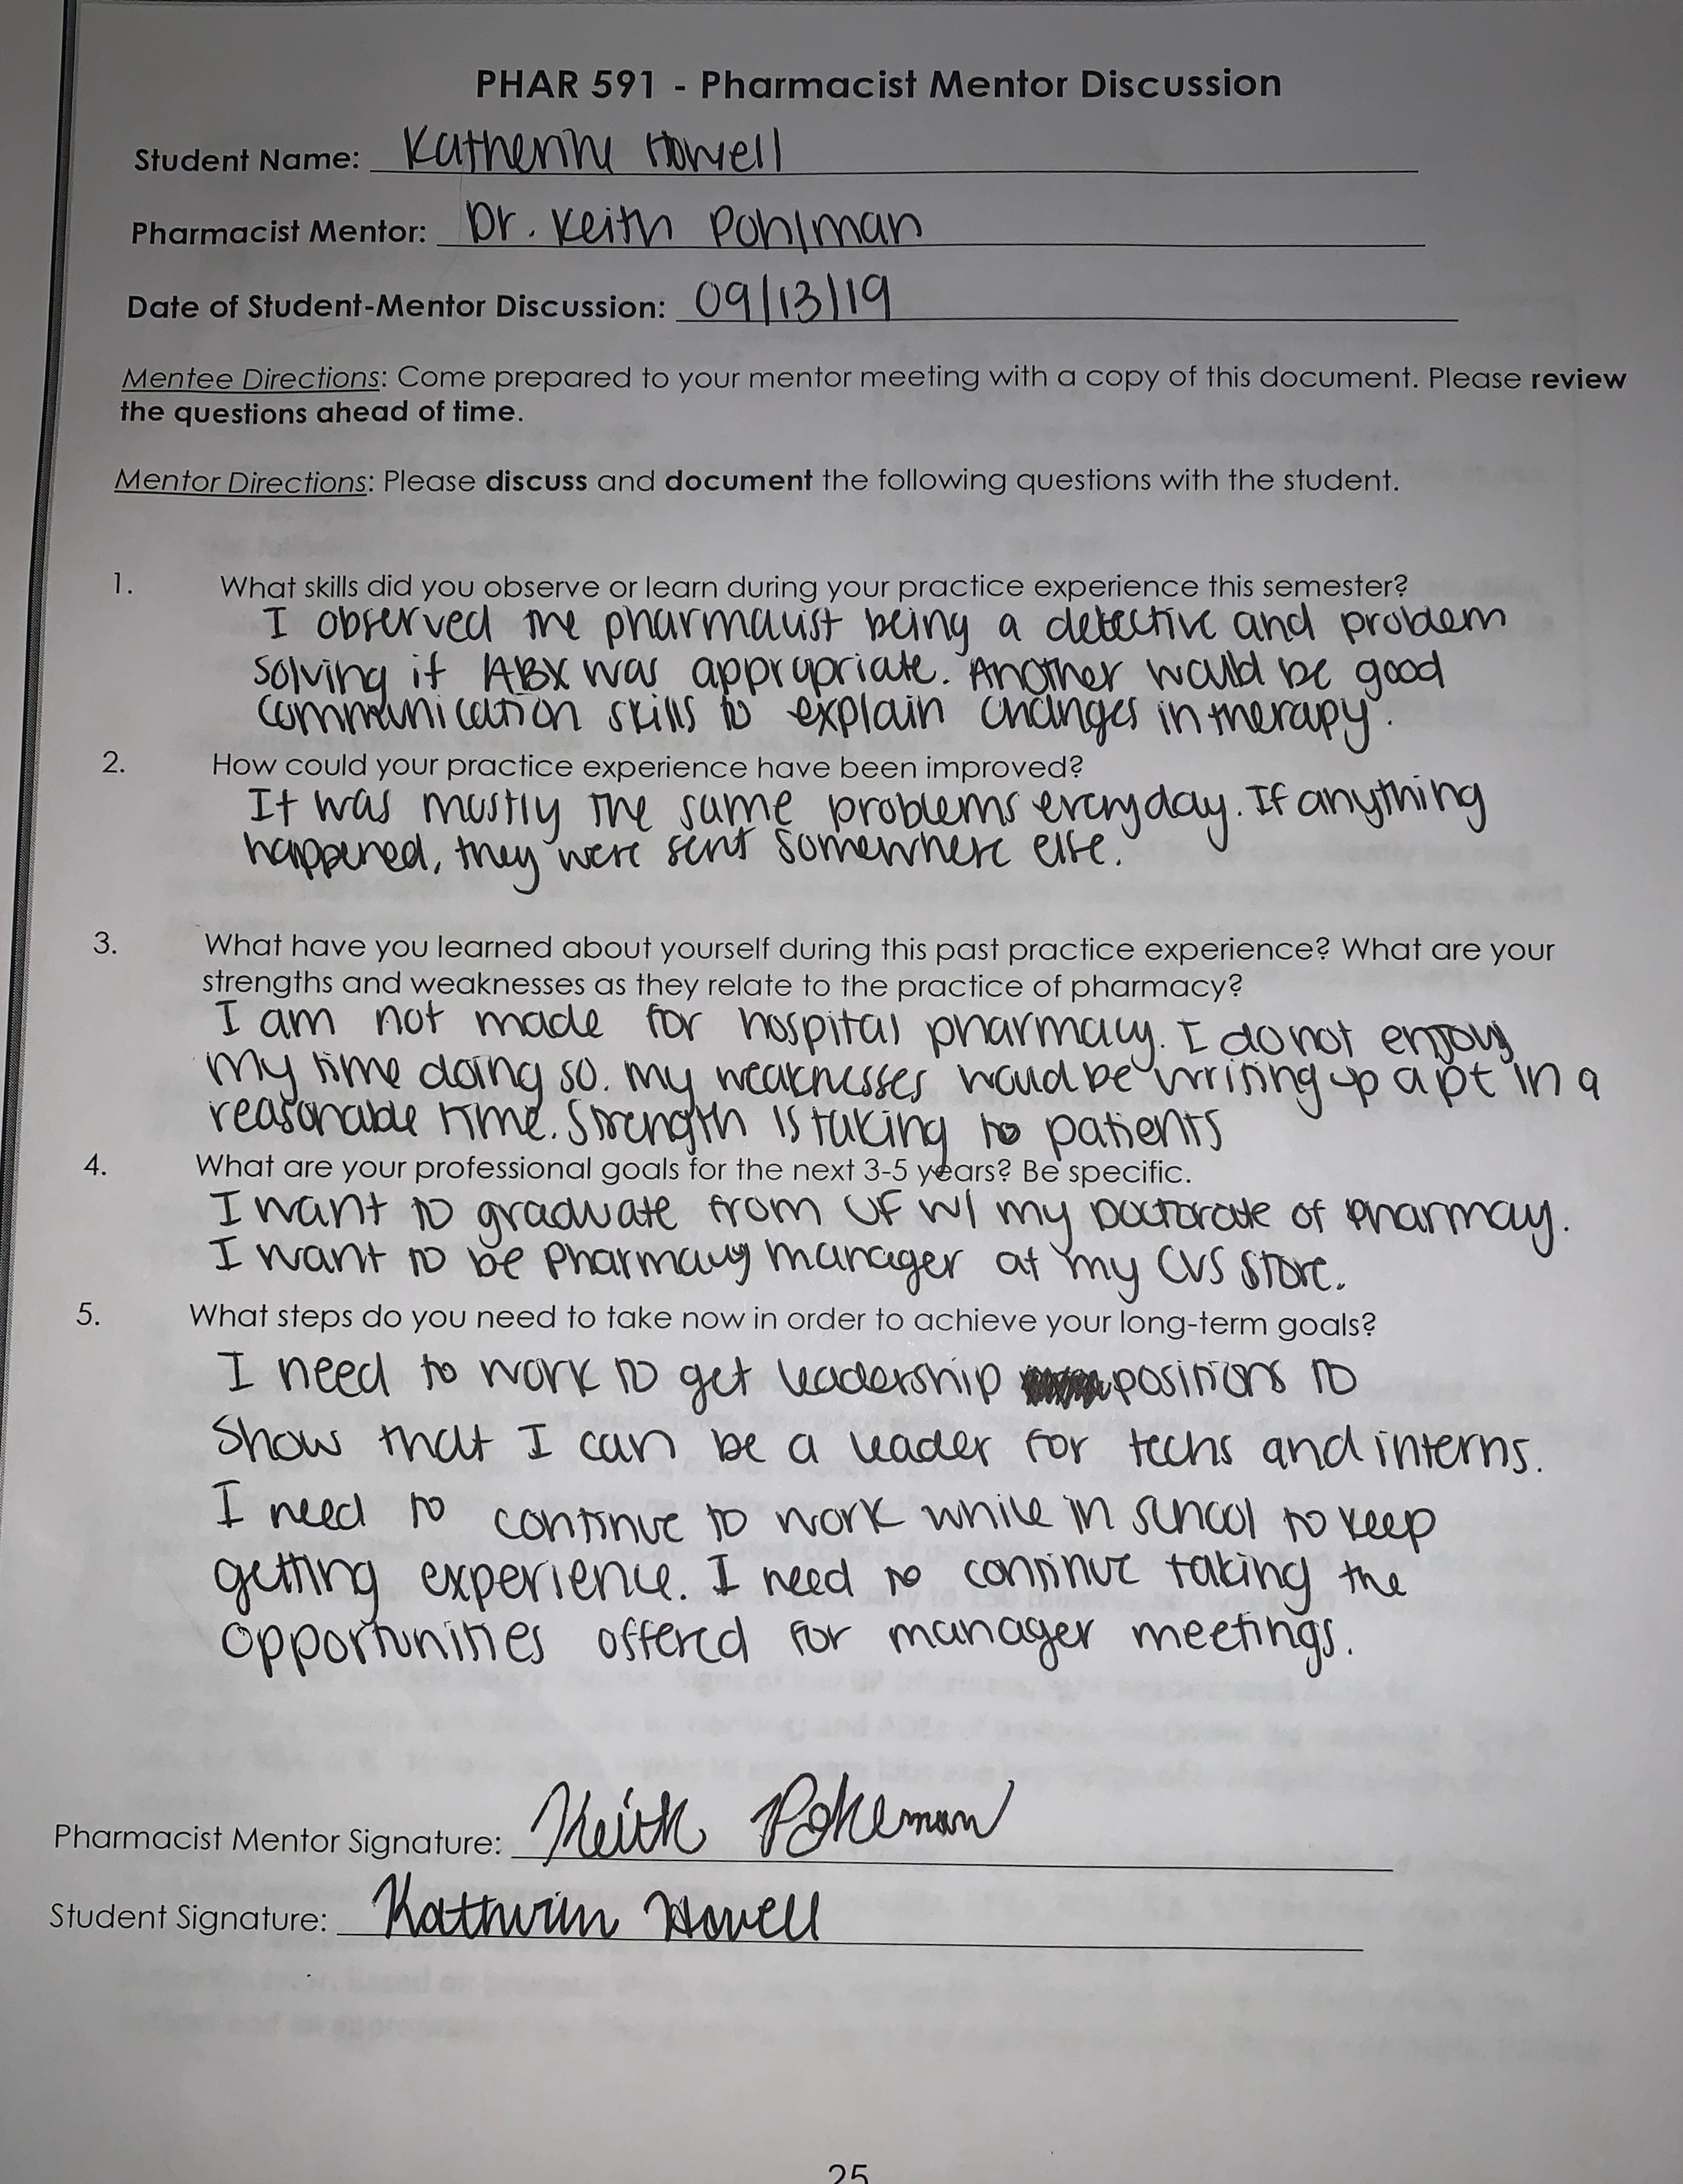 PHAR 591 - Pharmacist Mentor Discussion
Student Name: Katherine Howell
Pharmacist Mentor: Dr. Keith Pohlman
Date of Student-Mentor Discussion: 09/13/19
Mentee Directions: Come prepared to your mentor meeting with a copy of this document. Please review
the questions ahead of time.
Mentor Directions: Please discuss and document the following questions with the student.
1. What skills did you observe or learn during your practice experience this semester?
I observed the pharmacist being a detective and problem
solving if ABX was appropriate. Another would be good
communication skills to explain changes in therapy.
2. How could your practice experience have been improved?
It was mostly the same problems everyday. If anything
happened, they were sent somewhere else.
3. What have you learned about yourself during this past practice experience? What are your
strengths and weaknesses as they relate to the practice of pharmacy?
I am not made for hospital pharmacy. I do not enjoy
my time doing so. My weaknesses would be writing up a pt in a
reasonable time. Strength is talking to patients
4. What are your professional goals for the next 3-5 years? Be specific.
I want to graduate from UF w/ my Doctorate of Pharmacy.
I want to be Pharmacy manager at my CVS store.
5. What steps do you need to take now in order to achieve your long-term goals?
I need to work to get leadership positions to
show that I can be a leader for techs and interns.
I need to continue to work while in school to keep
getting experience. I need to continue taking the
opportunities offered for manager meetings.
Pharmacist Mentor Signature: Keith Pohlman
Student Signature: Katherine Howell
25